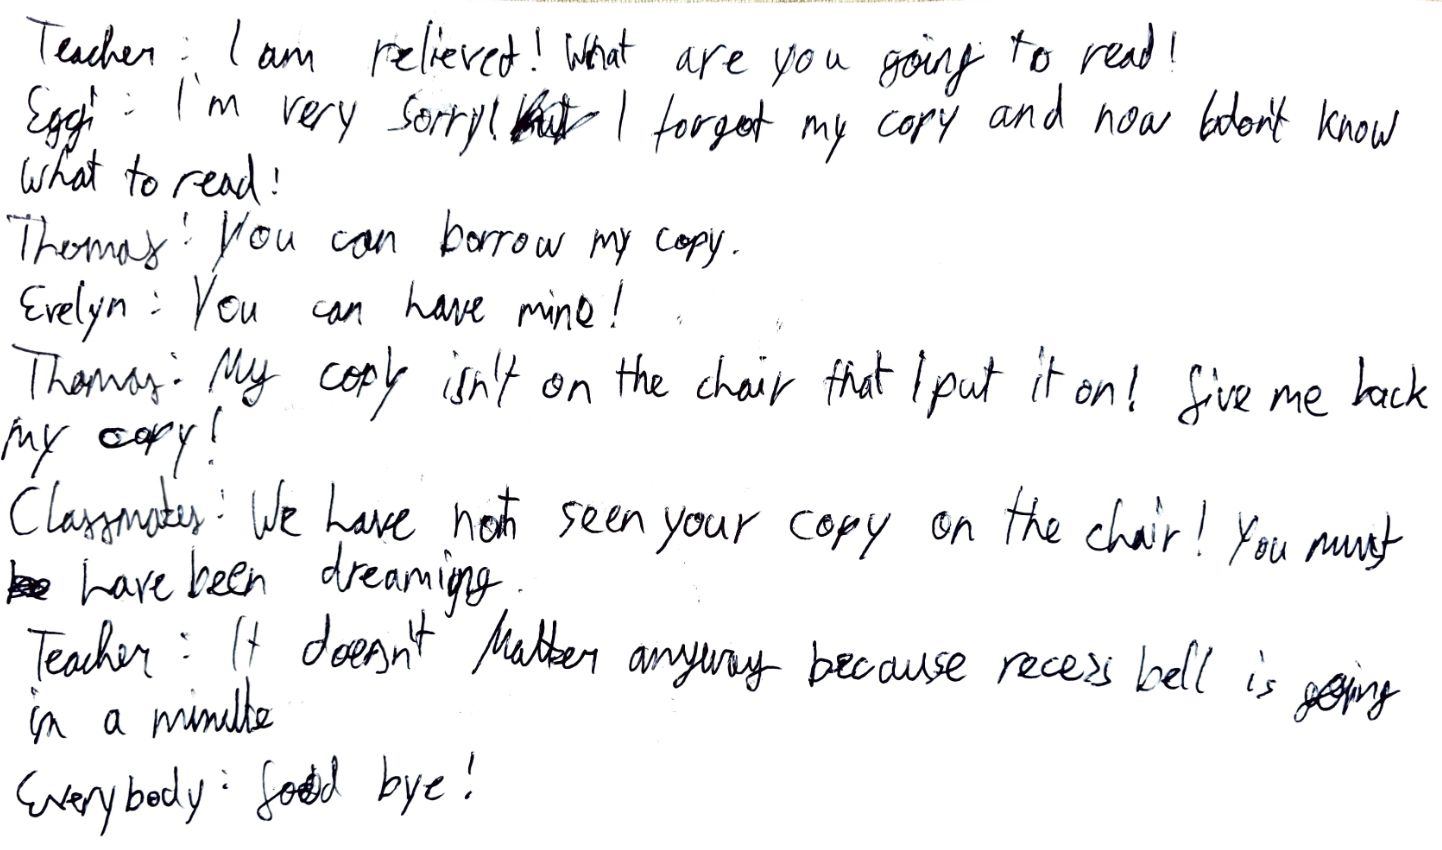 Teacher : I am relieved! What are you going to read!
Eggi : I'm very sorry! I forgot my copy and now I don't know
what to read!
Thomas : You can borrow my copy.
Evelyn : You can have mine!
Thomas : My copy isn't on the chair that I put it on! Give me back
my copy!
Classmates : We have not seen your copy on the chair! You must
have been dreaming.
Teacher : It doesn't matter anyway because recess bell is going
in a minute
Everybody : Good bye!